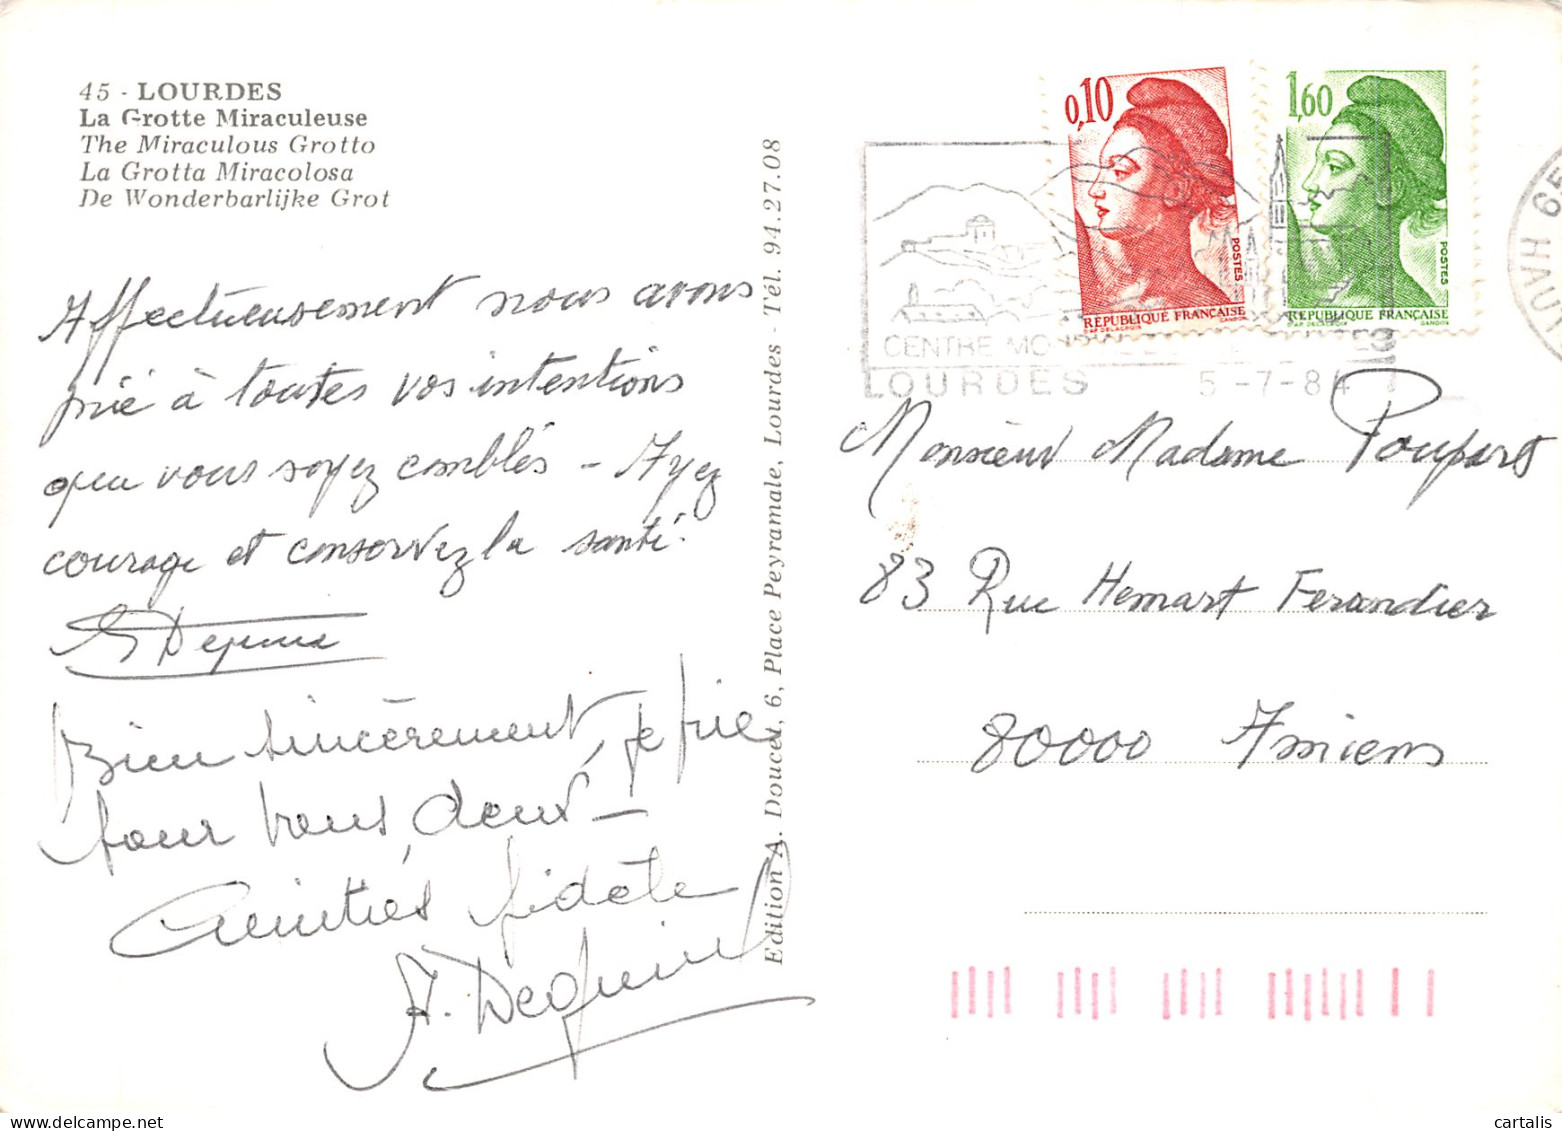 45 - LOURDES
La Grotte Miraculeuse
The Miraculous Grotto
La Grotta Miracolosa
De Wonderbarlijke Grot
Affectueusement nous avons
prié à toutes vos intentions
que vous soyez comblés - Ayez
courage et conservez la santé.
Bien sincèrement, je prie
pour vous deux -
Amitiés fidèle
A. Dequin
Edition A. Doucet, 6, Place Peyramale, Lourdes - Tél. 94.27.08
0,10
POSTES
REPUBLIQUE FRANÇAISE
D'AP. DELACROIX GANDON
1,60
POSTES
REPUBLIQUE FRANÇAISE
D'AP. DELACROIX GANDON
CENTRE
LOURDES 5-7-84
65
Monsieur Madame Poupart
83 Rue Hemart Ferandier
80000 Amiens
cartalis